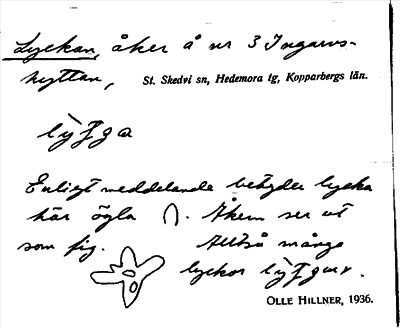 Lyckan, åker å nr 3 Ingarvs-
hyttan, St. Skedvi sn, Hedemora tg, Kopparbergs län.
Enligt meddelande betyder lycka
här ögla. Åkern ser ut
som fig. Alltså många
lyckor
OLLE HILLNER, 1936.